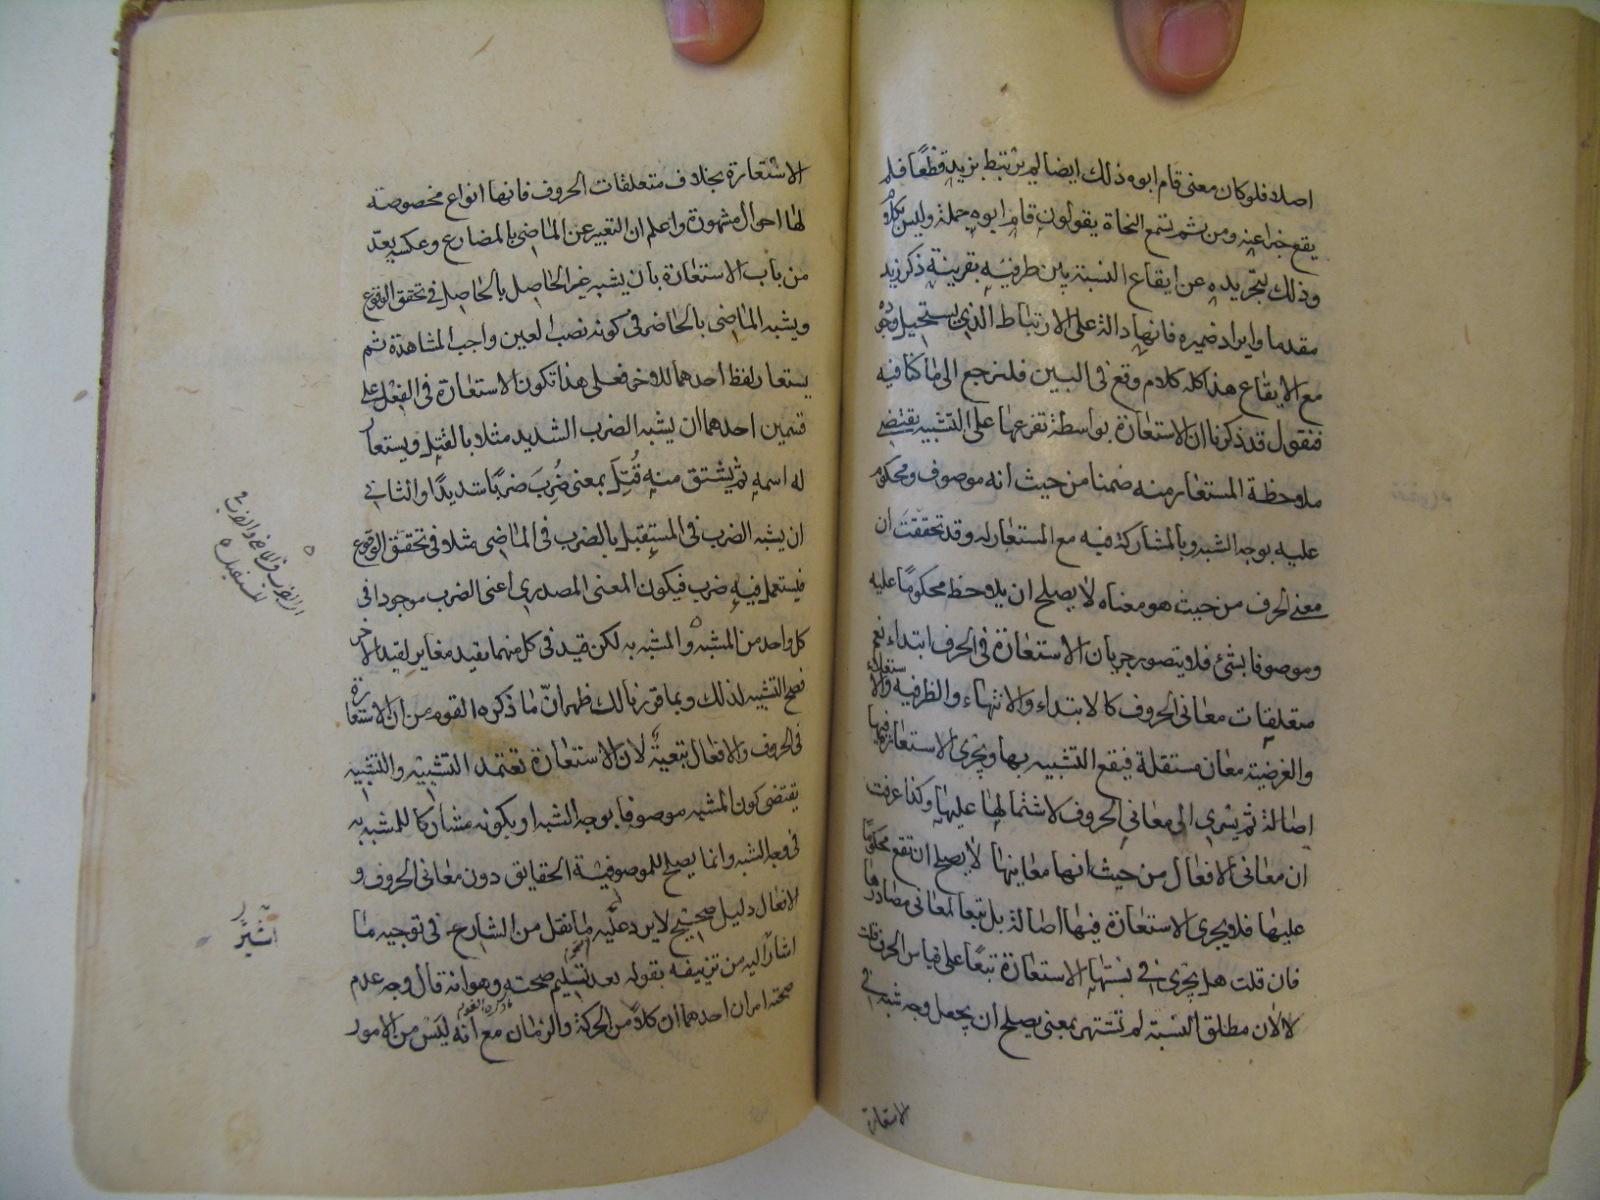 اصلا فلو كان معنى قام ابوه ذلك ايضا لم يرتبط بزيد قطعًا فلم
يقع خبرا عنه ومن ثم تسمع النحاة يقولون قام ابوه جملة وليس بكلام
وذلك لتجريده عن ايقاع النسبة بين طرفيه بقرينة ذكر زيد
مقدما وايراد ضميره فانها دالة على الارتباط الذى يستحيل وجوده
مع الايقاع هذا كله كلام وقع فى البين فلنرجع الى ما كنا فيه
فنقول قد ذكرنا ان الاستعارة بواسطة تفرعها على التشبيه يقتضى
ملاحظة المستعار منه ضمنا من حيث انه موصوف ومحكوم
عليه بوجه الشبه وبالمشاركة فيه مع المستعار له وقد تحققت ان
معنى الحرف من حيث هو معناه لا يصلح ان يلاحظ محكومًا عليه
وموصوفا بشئ فلا يتصور جريان الاستعارة فى الحرف ابتداء نعم
متعلقات معانى الحروف كالابتداء والانتهاء والظرفية والاستعلاء
والغرضية معان مستقلة فيقع التشبيه بها ويجرى الاستعارة فيها
اصالة ثم يسرى الى معانى الحروف لاشتمالها عليها وكذا عرفت
ان معانى الافعال من حيث انها معانيها لا يصلح ان تقع محكومًا
عليها فلا يجرى الاستعارة فيها اصالة بل تبعا لمعانى مصادرها
فان قلت هل يجرى فى نسبتها الاستعارة تبعًا على قياس الحرف قلت
لا لان مطلق النسبة لم تشتهر بمعنى يصلح ان يجعل وجه شبه فى
الاستعارة
الاستعارة بخلاف متعلقات الحروف فانها انواع مخصوصة
لها احوال مشهورة واعلم ان التعبير عن الماضى بالمضارع وعكسه يعدّ
من باب الاستعارة بان يشبه غير الحاصل بالحاصل فى تحقق الوقوع
ويشبه الماضى بالحاضر فى كونه نصب العين واجب المشاهدة ثم
يستعار لفظ احدهما للاخر فعلى هذا تكون الاستعارة فى الفعل على
قسمين احدهما ان يشبه الضرب الشديد مثلا بالقتل ويستعار
له اسمه ثم يشتق منه قُتِلَ بمعنى ضُرِبَ ضربًا شديدًا والثانى
ان يشبه الضرب فى المستقبل بالضرب فى الماضى مثلا فى تحقق الوقوع
فيستعمل فيه ضرب فيكون المعنى المصدرى اعنى الضرب موجودا فى
كل واحد من المشبه والمشبه به لكن قيد فى كل منهما بقيد مغاير لقيد الاخر
فصح التشبيه لذلك وبما قررنا لك ظهر انّ ما ذكره القوم من ان الاستعارة
فى الحروف والافعال تبعية لان الاستعارة تعتمد التشبيه والتشبيه
يقتضى كون المشبه موصوفا بوجه الشبه او بكونه مشاركا للمشبه به
فى وجه الشبه وانما يصلح للموصوفية الحقايق دون معانى الحروف و
الافعال دليل صحيح لا يرد عليه ما نقل من الشارح فى توجيه ما
اشار اليه من تزييفه بقوله بعد تسليم صحته وهو انه قال وجه عدم
صحته امران احدهما ان كلاً من الحركة والزمان مع انه ليس من الامور
ما ذكره القوم